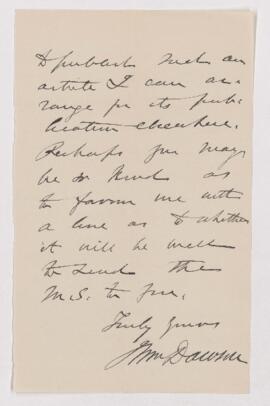 to publish such an
article I can ar-
range for its pub-
lication elsewhere.
Perhaps you may
be so kind as
to favour me with
a line as to whether
it will be well
to send the
M.S. to you.
Truly yours
Wm Dawson